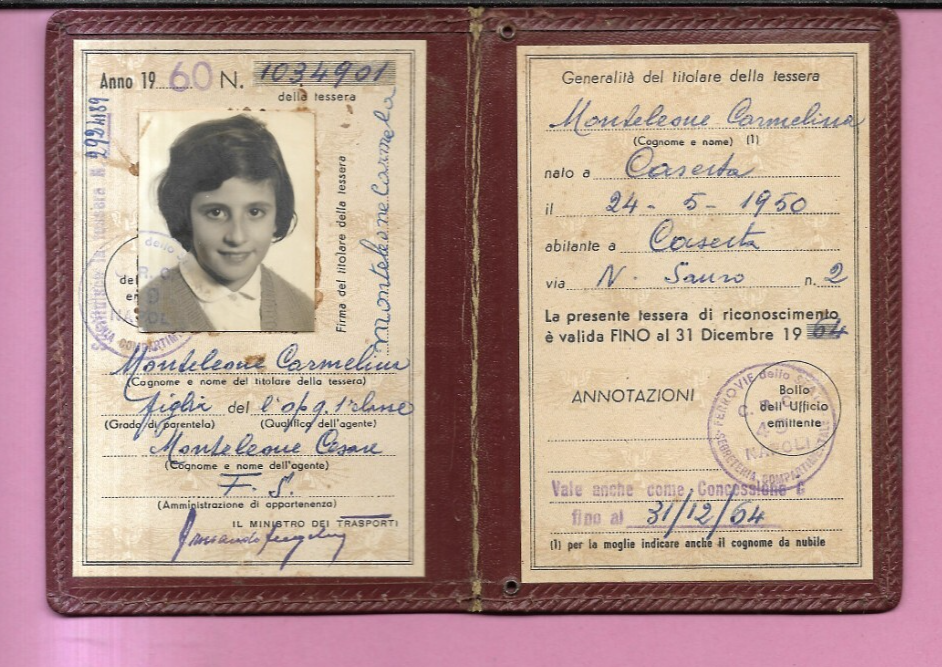 Anno 19 60 N. 1034901
della tessera
292489
Firma del titolare della tessera
Monteleone Carmela
Monteleone Carmelina
(Cognome e nome del titolare della tessera)
figlia del l'op q. 1ª classe
(Grado di parentela) (Qualifica dell'agente)
Monteleone Cesare
(Cognome e nome dell'agente)
F. S.
(Amministrazione di appartenenza)
IL MINISTRO DEI TRASPORTI
Generalità del titolare della tessera
Monteleone Carmelina
(Cognome e nome) (1)
nato a Caserta
il 24 - 5 - 1950
abitante a Caserta
via N. Sauro n. 2
La presente tessera di riconoscimento
è valida FINO al 31 Dicembre 19 64
ANNOTAZIONI
Bollo
dell'Ufficio
emittente
FERROVIE dello STATO
NAPOLI
SEGRETERIA COMPARTIMENTALE
Vale anche come Concessione C
fino al 31/12/64
(1) per la moglie indicare anche il cognome da nubile